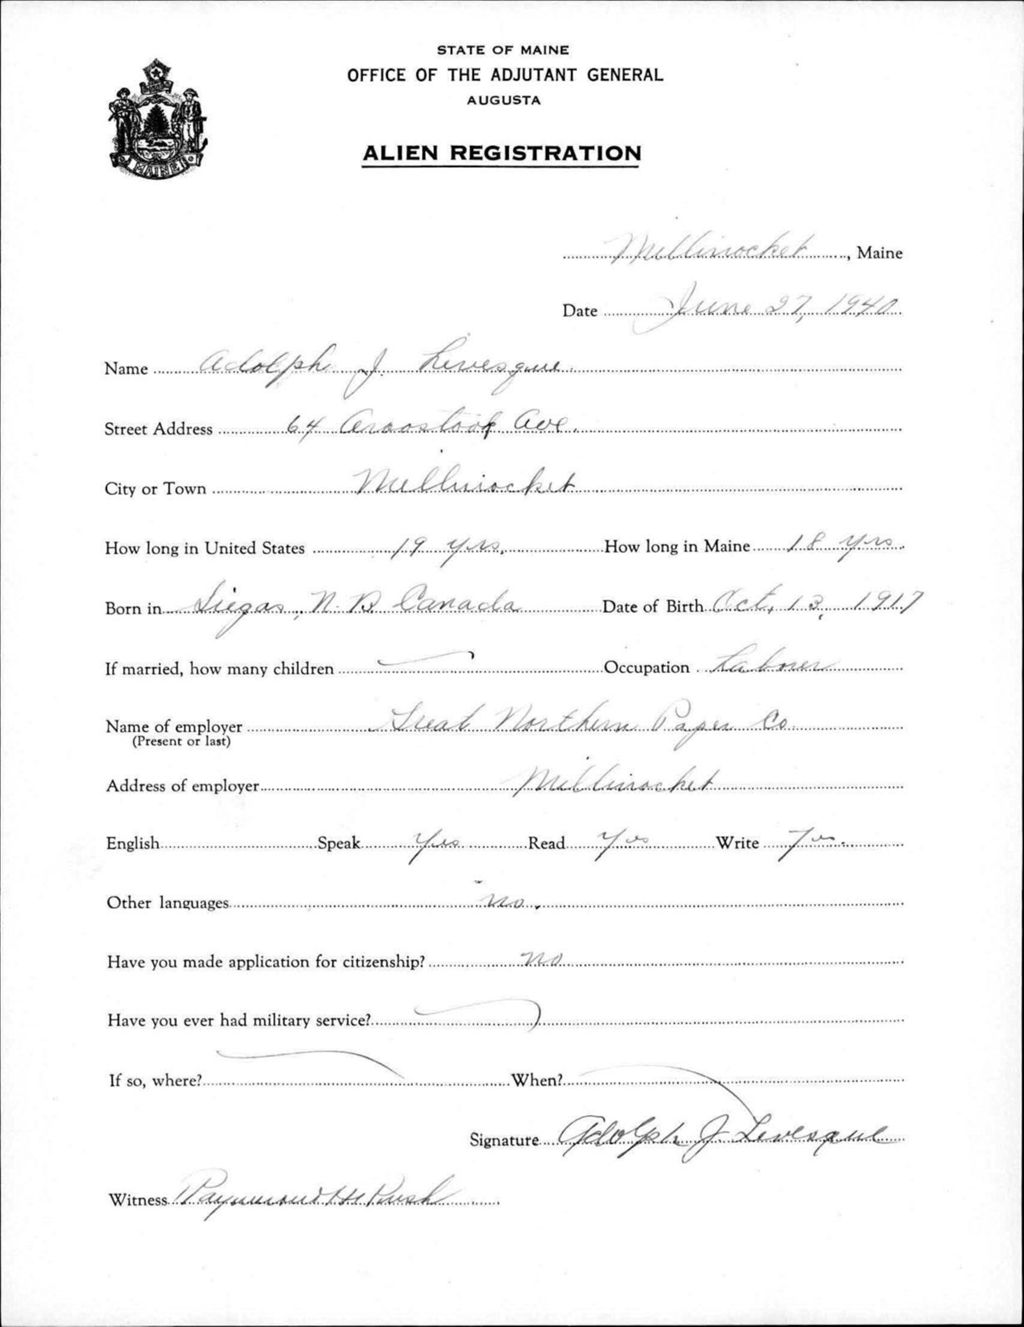 STATE OF MAINE
OFFICE OF THE ADJUTANT GENERAL
AUGUSTA
ALIEN REGISTRATION
MAINE
Millinocket, Maine
Date June 27, 1940
Name Adolph J. Levesque
Street Address 64 Aroostook Ave.
City or Town Millinocket
How long in United States 19 yrs. How long in Maine 18 yrs.
Born in Siegas, N. B Canada Date of Birth Oct. 13, 1917
If married, how many children Occupation Laborer
Name of employer Great Northern Paper Co
(Present or last)
Address of employer Millinocket
English Speak Yes Read Yes Write Yes.
Other languages no.
Have you made application for citizenship? no
Have you ever had military service?
If so, where? When?
Signature Adolph J Levesque
Witness Raymond H Rush